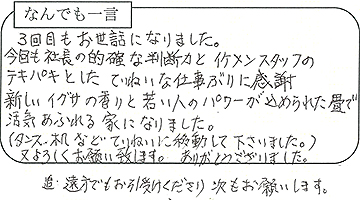 なんでも一言
3回目もお世話になりました。
今回も社長の的確な判断力とイケメンスタッフの
テキパキとした ていねいな仕事ぶりに感謝
新しいイグサの香りと若い人のパワーが込められた畳で
活気あふれる家になりました。
(タンス、机などていねいに移動して下さいました。)
又よろしくお願い致します。ありがとうございました。
追 遠方でもお引受けくださり次もお願いします。